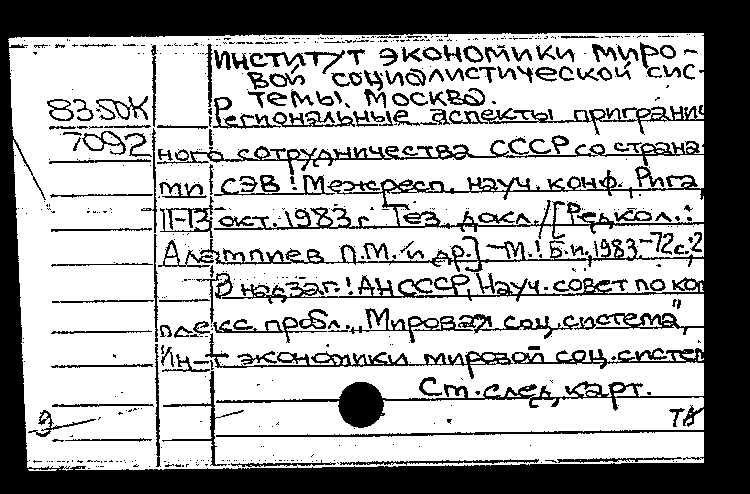 Институт экономики миро-
вой социалистической сис-
83-50К темы. Москва.
Региональные аспекты приграничн
7092 ного сотрудничества СССР со страна
ми СЭВ: Межресп. науч. конф., Рига,
11-13 окт. 1983 г. Тез. докл. / [Редкол.:
Алампиев П.М. и др.] - М.: Б.и, 1983. - 72 с.; 2
В надзаг.: АН СССР, Науч. совет по ком
плекс. пробл. „Мировая соц. система",
Ин-т экономики мировой соц. систем
См. след. карт.
9 ТВ